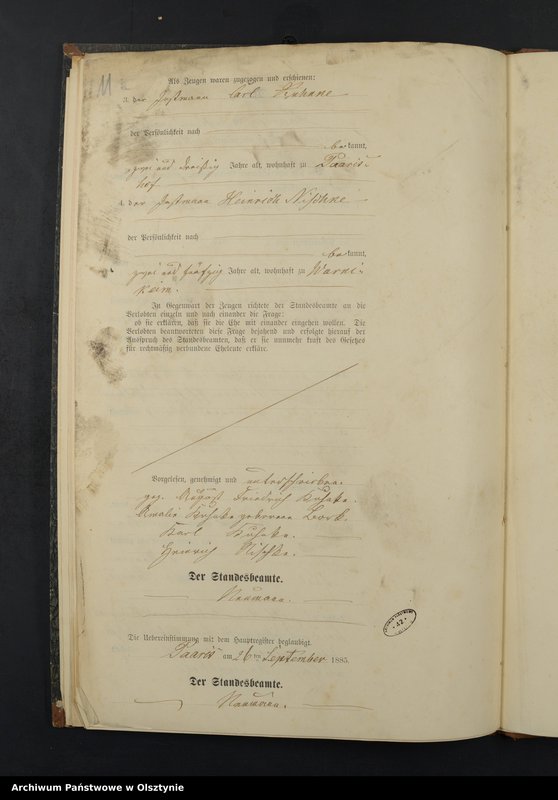 11
Als Zeugen waren zugezogen und erschienen:
3. der Instmann Carl
der Persönlichkeit nach
bekannt,
zwei und dreißig Jahre alt, wohnhaft zu Paaris-
hof
4. der Instmann Heinrich Nischke
der Persönlichkeit nach
bekannt,
zwei und fünfzig Jahre alt, wohnhaft zu Warni-
keim.
In Gegenwart der Zeugen richtete der Standesbeamte an die
Verlobten einzeln und nach einander die Frage:
ob sie erklären, daß sie die Ehe mit einander eingehen wollen. Die
Verlobten beantworteten diese Frage bejahend und erfolgte hierauf der
Ausspruch des Standesbeamten, daß er sie nunmehr kraft des Gesetzes
für rechtmäßig verbundene Eheleute erkläre.
Vorgelesen, genehmigt und unterschrieben.
gez. August Friedrich
Amalie geborene Bork.
Karl
Heinrich Nischke.
Der Standesbeamte.
Naumann.
Die Uebereinstimmung mit dem Hauptregister beglaubigt.
Paaris am 26ten September 1885.
Der Standesbeamte.
Naumann.
Archiwum Państwowe w Olsztynie